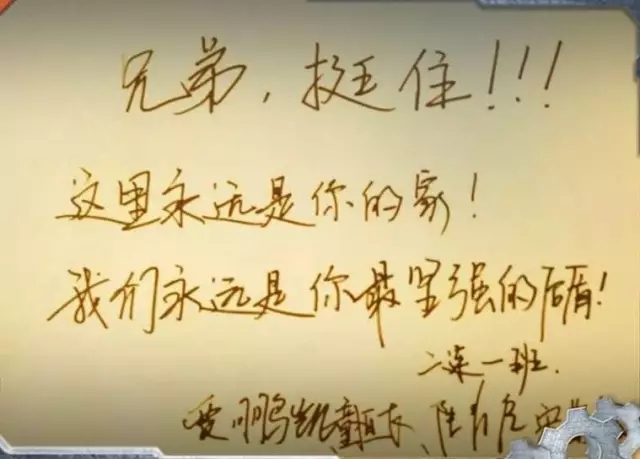 兄弟，挺住!!!
这里永远是你的家!
我们永远是你最坚强的后盾!
二连一班.
鹏凯